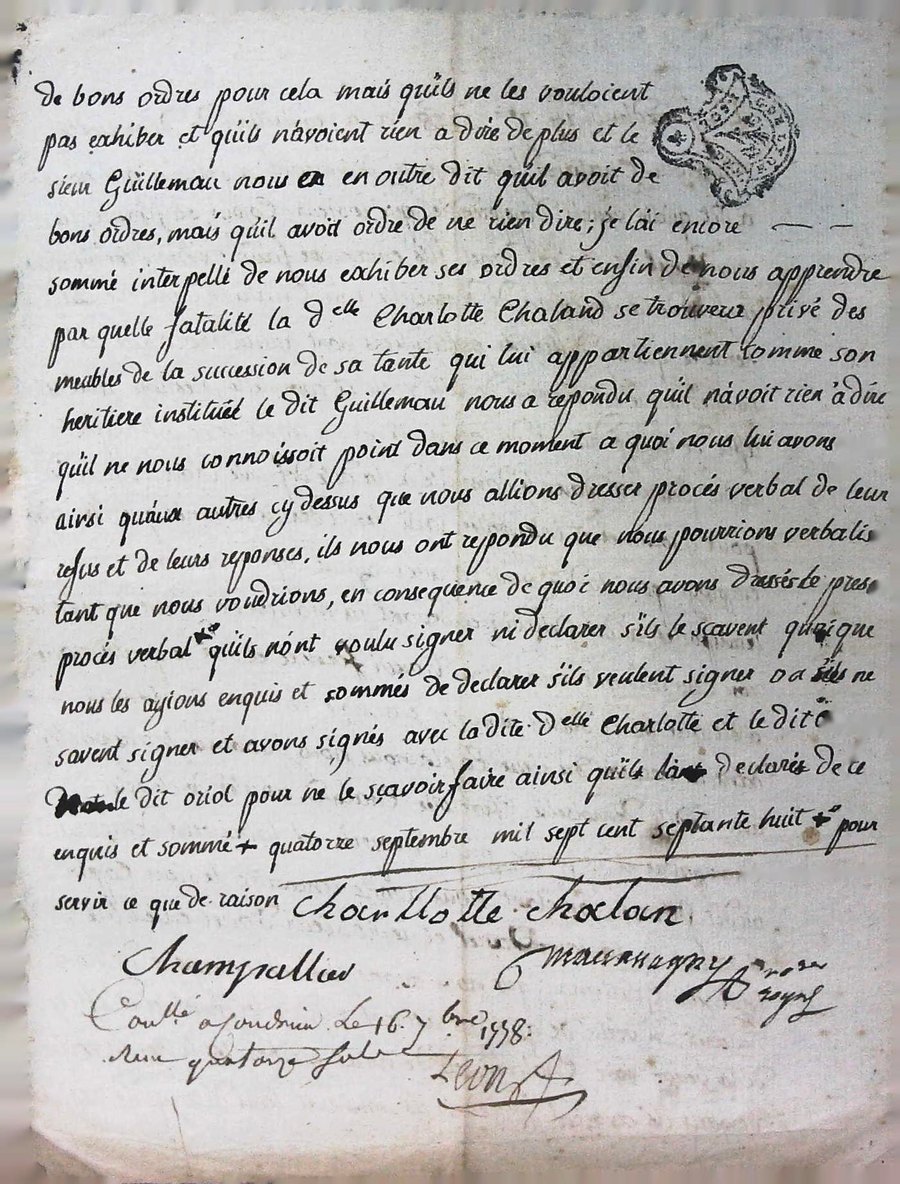 de bons ordres pour cela mais qu'ils ne les vouloient
pas exhiber et qu'ils n'avoient rien a dire de plus et le
sieur Guillemau nous en en outre dit qu'il avoit de
bons ordres, mais qu'il avoit ordre de ne rien dire; je l'ai encore — —
sommé interpellé de nous exhiber ses ordres et enfin de nous apprendre
par quelle fatalité la delle Charlotte Chaland se trouvera privé des
meubles de la succession de sa tante qui lui appartiennent comme son
heritiere instituéé le dit Guillemau nous a repondu qu'il n'avoit rien a dire
qu'il ne nous connoissoit point dans ce moment a quoi nous lui avons
ainsi qu'aux autres cy dessus que nous allions dresser procés verbal de leur
refus et de leurs reponses, ils nous ont repondu que nous pourrions verbalis
tant que nous voudrions, en consequence de quoi nous avons dressés le pres
procés verbal qu'ils n'ont voulu signer ni declarer s'ils le sçavent quoique
nous les ayions enquis et sommés de declarer s'ils veulent signer ou s'ils ne
savent signer et avons signés avec la dite delle Charlotte et le dit
le dit oriol pour ne le sçavoir faire ainsi qu'ils declarés de ce
enquis et sommé + quatorze septembre mil sept cent septante huit + pour
servir ce que de raison Charllotte Chalan
Champallier
Le 16. 7bre 1778:
quatorze sols